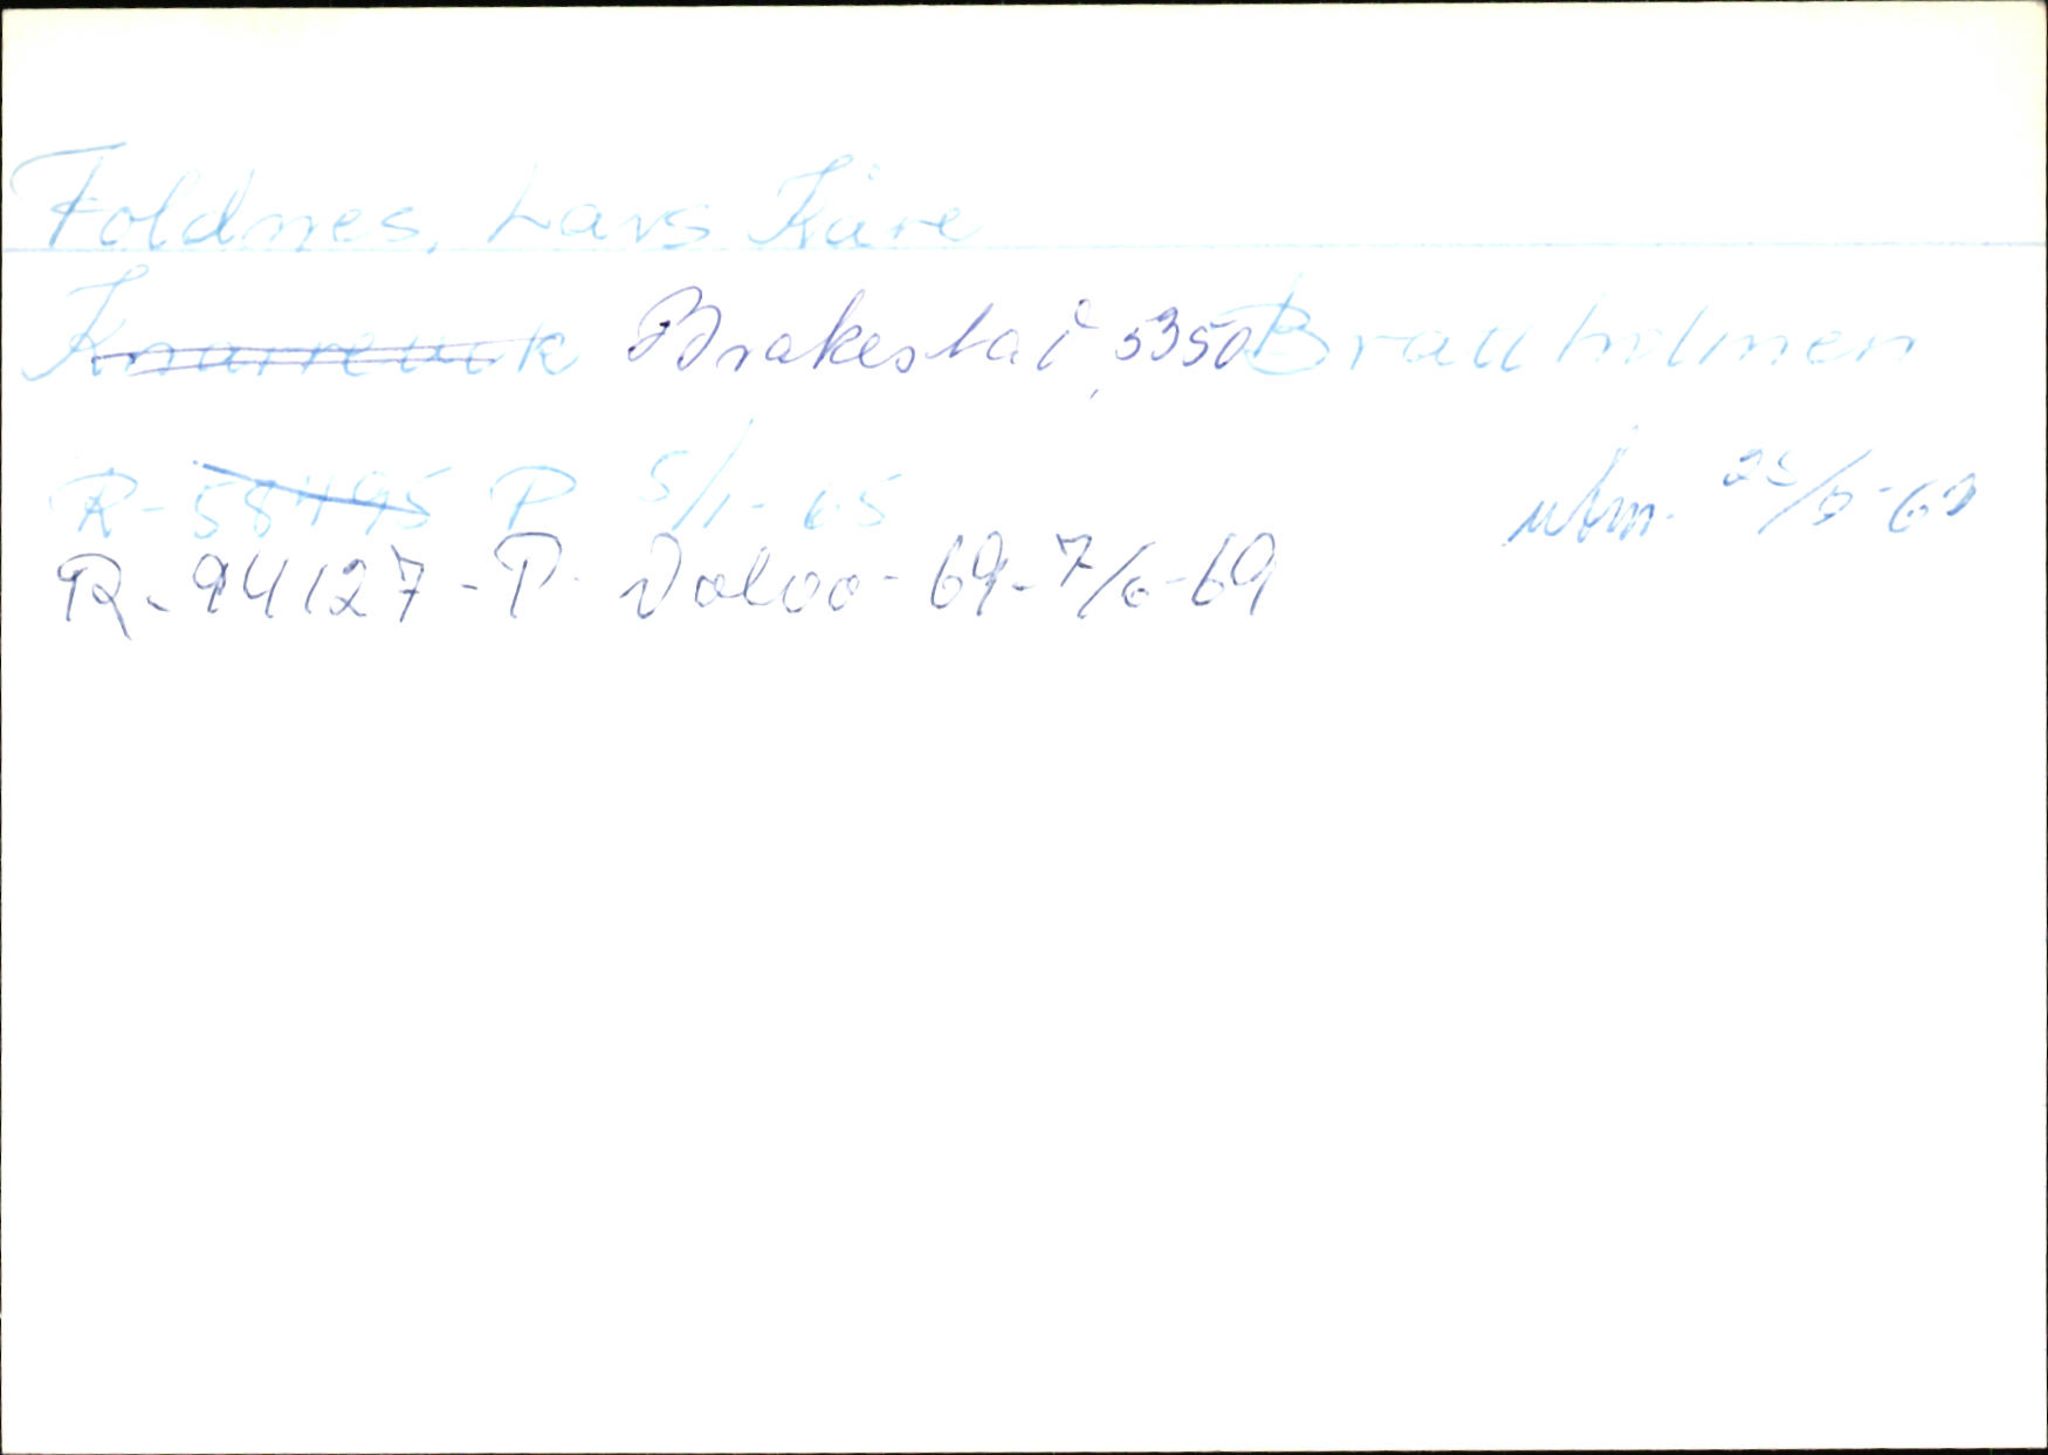 Foldnes, Lars Kåre
Knarrevik Brakestad, 5350 Brattholmen
R-58495 P 5/1-65 utm. 23/5-69
R-94127-P. Volvo-69-7/6-69